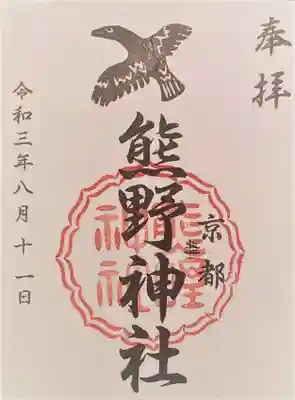 奉拝
京都
熊野神社
令和三年八月十一日